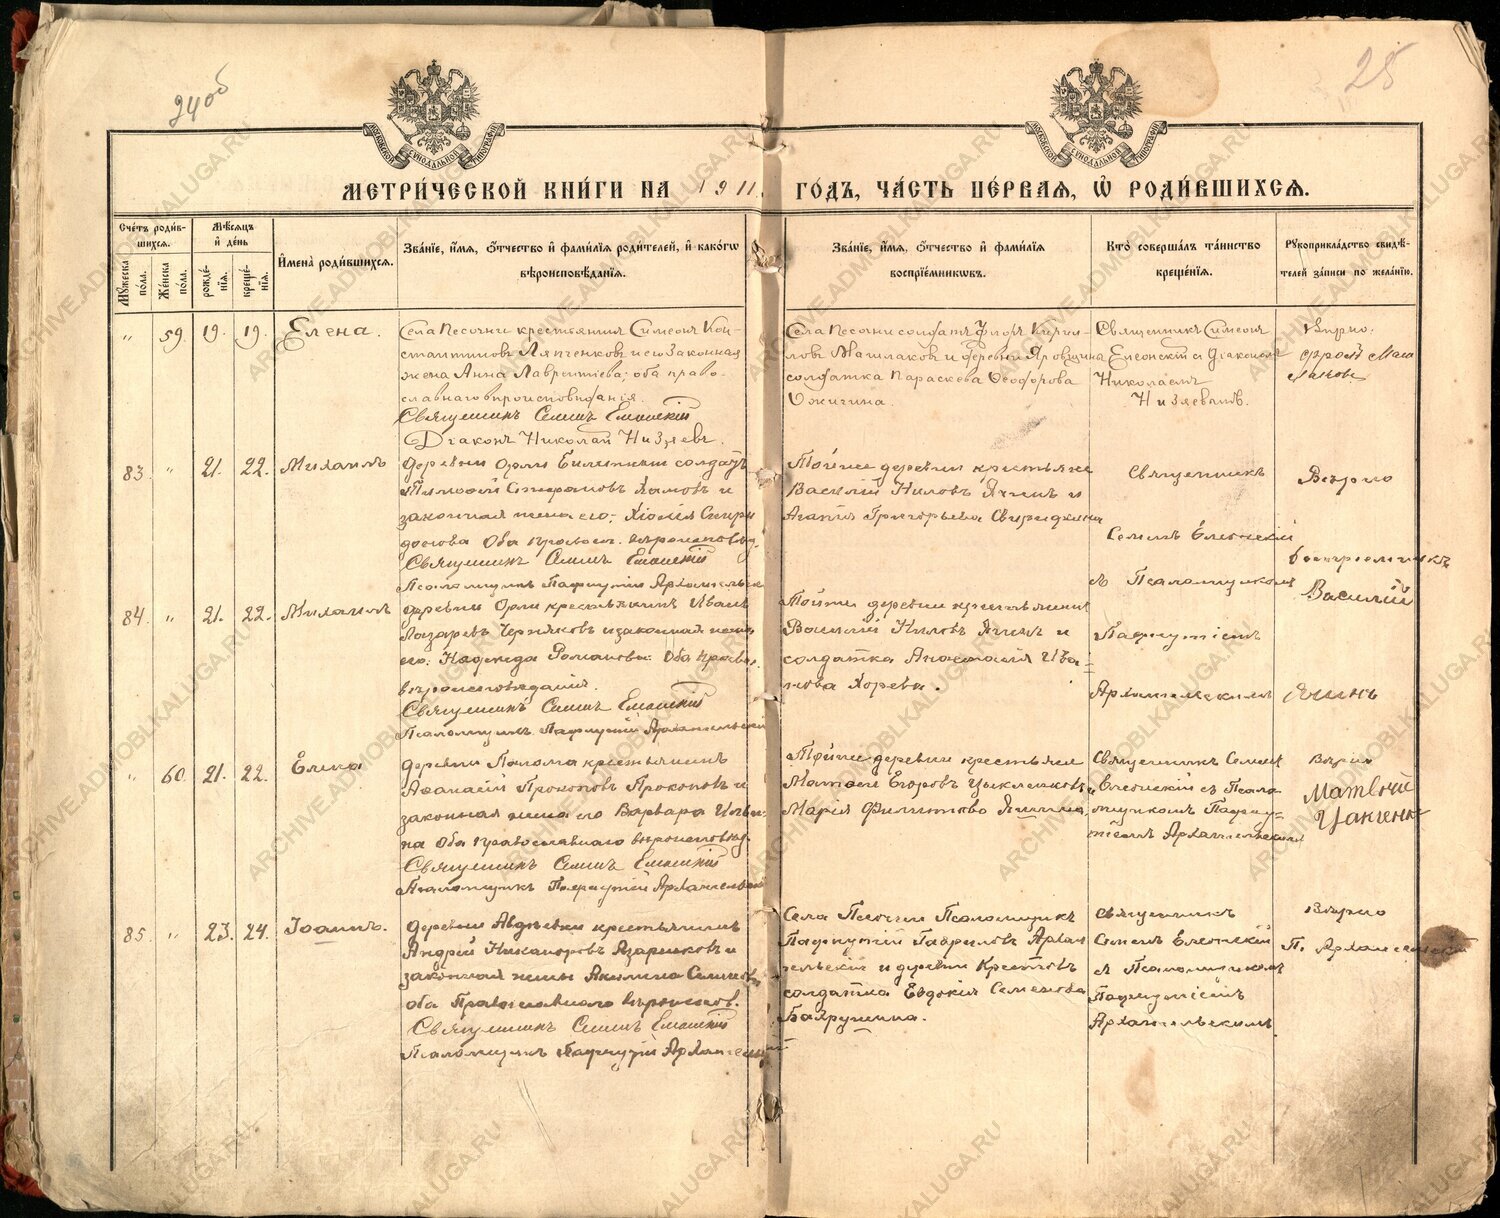 24об
25
МЕТРИ́ЧЕСКОЙ КНИ́ГИ НА 1911. ГО́ДЪ, ЧА́СТЬ ПЕ́РВАЯ, Ѡ РОДИ́ВШИХСЯ.
Сче́тъ роди́в-
шихся.
Му́жеска по́ла.
Же́нска по́ла.
Мѣ́сяцъ
и день
рожде́-
нїя.
креще́-
нїя.
Имена̀ роди́вшихся.
Зва́нїе, и́мя, ѻ҆́тчество и фами́лїя роди́телей, и како́гѡ
вѣроисповѣ́данїя.
Зва́нїе, и́мя, ѻ҆́тчество и фами́лїя
воспрїе́мникѡвъ.
Кто̀ соверша́лъ та́инство
креще́нїя.
Рꙋкоприкла́дство свидѣ́-
телей за́писи по жела́нїю.
" 59. 19. 19. Елена.
Села Песочни крестьянин Симеон Кон-
стантиновъ Ляпченковъ и его законная
жена Анна Лаврентіева; оба право-
славнаго вѣроисповѣданія.
Священникъ Симеонъ Елеонскій
Діаконъ Николай Низяевъ.
Села Песочни солдатъ Флоръ Кирил-
ловъ Машлаковъ и деревни Яровщина
солдатка Параскева Ѳеодорова
Ожигина.
Священникъ Симеонъ
Елеонскій съ діакономъ
Николаемъ
Низяевымъ.
Вѣрно.
83 " 21. 22. Михаилъ
деревни Орли солдатъ
Тимофей Стефановъ Хамовъ и
законная жена его; Спири
донова Оба правосл. вѣроисповѣд.
Священникъ Симеонъ Елеонскій
Псаломщикъ Пафнутій Архангельскій
Той же деревни крестьяне
Василій Ниловъ Ячинъ и
Агапія Григорьева Свиридкина
Священникъ
Семенъ Елеонскій
съ Псаломщикомъ
Пафнутіемъ
Архангельскимъ
Вѣрно
воспріемникъ
Василій
Ячинъ
84. " 21. 22. Михаилъ
деревни Орли крестьянинъ Иванъ
Лазаревъ Черняковъ и законная жена
его: Надежда Романова. Оба правосл.
вѣроисповѣданія.
Священникъ Симеонъ Елеонскій
Псаломщикъ Пафнутій Архангельскій
Той же деревни крестьянинъ
Василій Ниловъ Ячинъ и
солдатка Анастасія Ива-
нова Хорева.
" 60. 21. 22. Елена
деревни Палома крестьянинъ
Аѳанасій Прокоповъ Прокоповъ и
законная жена его Варвара Ильи-
на Оба Православнаго вѣроисповѣд.
Священникъ Симеонъ Елеонскій
Псаломщикъ Пафнутій Архангельскій
Той же деревни крестьяне
Матвей Егоровъ Цыкленковъ и
Марія Филиппова
Священникъ Семенъ
Елеонскій съ Псало
мщикомъ Пафну-
тіемъ Архангельскимъ
Вѣрно
Матвѣй
85. " 23. 24. Іоаннъ.
деревни Авдѣевки крестьянинъ
Андрей Никаноровъ Азаренковъ и
законная жена Акилина Семенова
оба Православнаго вѣроисповѣд.
Священникъ Симеонъ Елеонскій
Псаломщикъ Пафнутій Архангельскій
Села Песочни Псаломщикъ
Пафнутій Гавриловъ Архан
гельскій и деревни Крестовъ
солдатка Евдокія Семенова
Баярушина.
Священникъ
Семенъ Елеонскій
съ Псаломщикомъ
Пафнутіемъ
Архангельскимъ.
Вѣрно
П. Архангельскій
ARCHIVE.ADMOBLKALUGA.RU